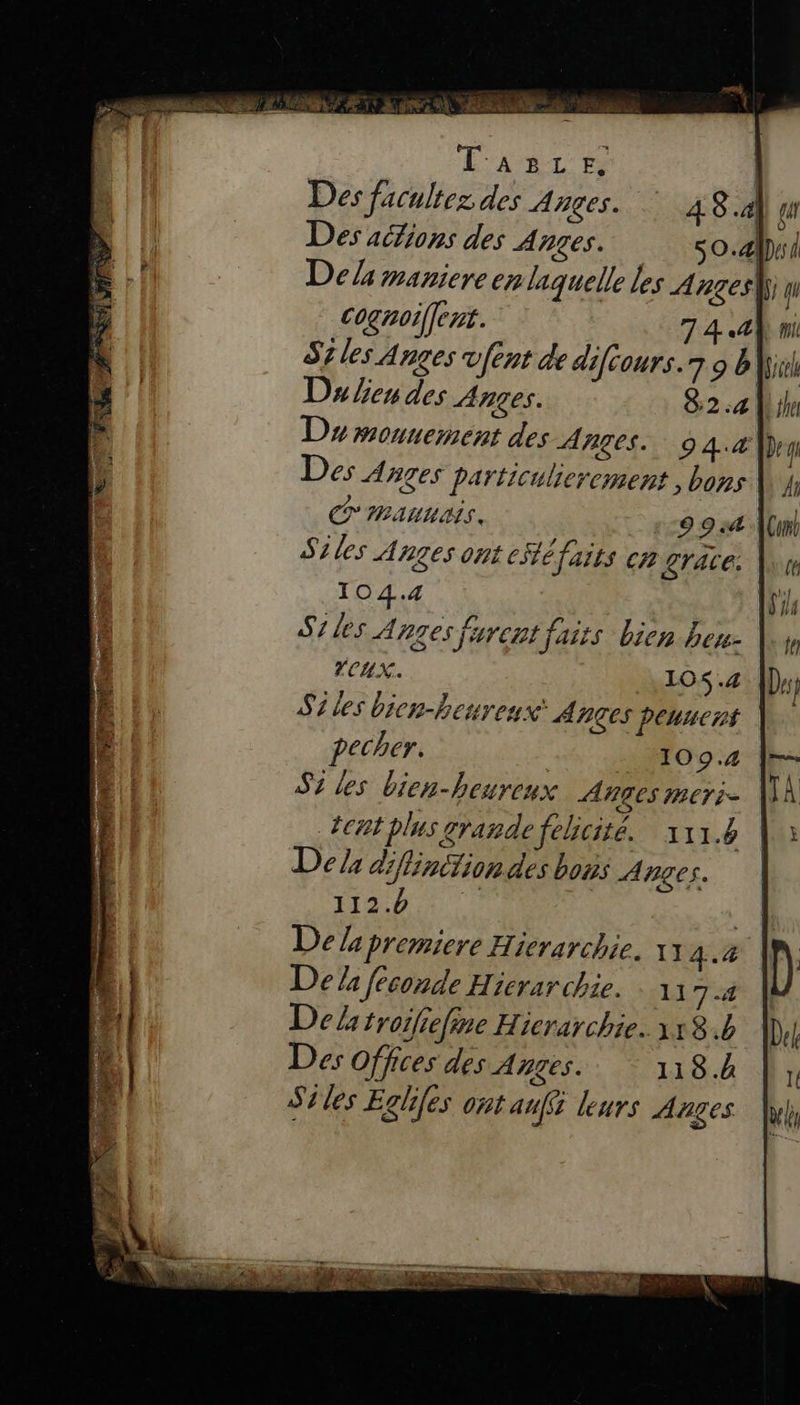 TABLE.
Des facultez des Anges. 48.a
Des actions des Anges. 50.a
De la maniere en laquelle les Anges
cognoiſſent. 74.a
Si les Anges vſent de diſcours. 79 b
Du lieu des Anges. 82.a
Du mouuement des Anges. 94.a
Des Anges particulierement, bons
& mauuais. 99.a
Si les Anges ont eſté faits en grace.
104.a
Si les Anges furent faits bien heu-
reux. 105.a
Si les bien-heureux Anges peuuent
pecher. 109.a
Si les bien-heureux Anges meri-
tent plus grande felicité. 111.b
De la diſtinction des bons Anges.
112.b
De la premiere Hierarchie. 114.a
De la ſeconde Hierarchie. 117.a
De la troiſieſme Hierarchie. 118.b
Des Offices des Anges. 118.b
Si les Egliſes ont auſſi leurs Anges